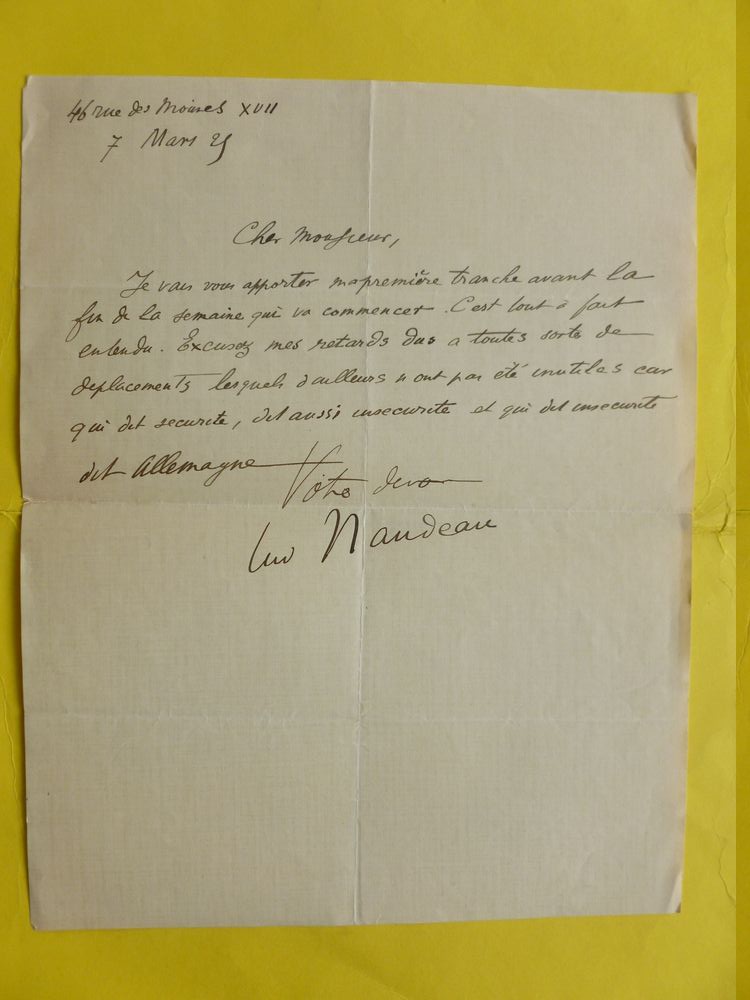 46 rue des Moines XVII
7 Mars 25
Cher Monsieur,
Je vais vous apporter ma première tranche avant la
fin de la semaine qui va commencer. C'est tout à fait
entendu. Excusez mes retards dus a toutes sortes de
deplacements lesquels d'ailleurs n'ont pas été inutiles car
qui dit securite, dit aussi insecurite et qui dit insecurite
dit Allemagne
Votre devoue
Lud Naudeau